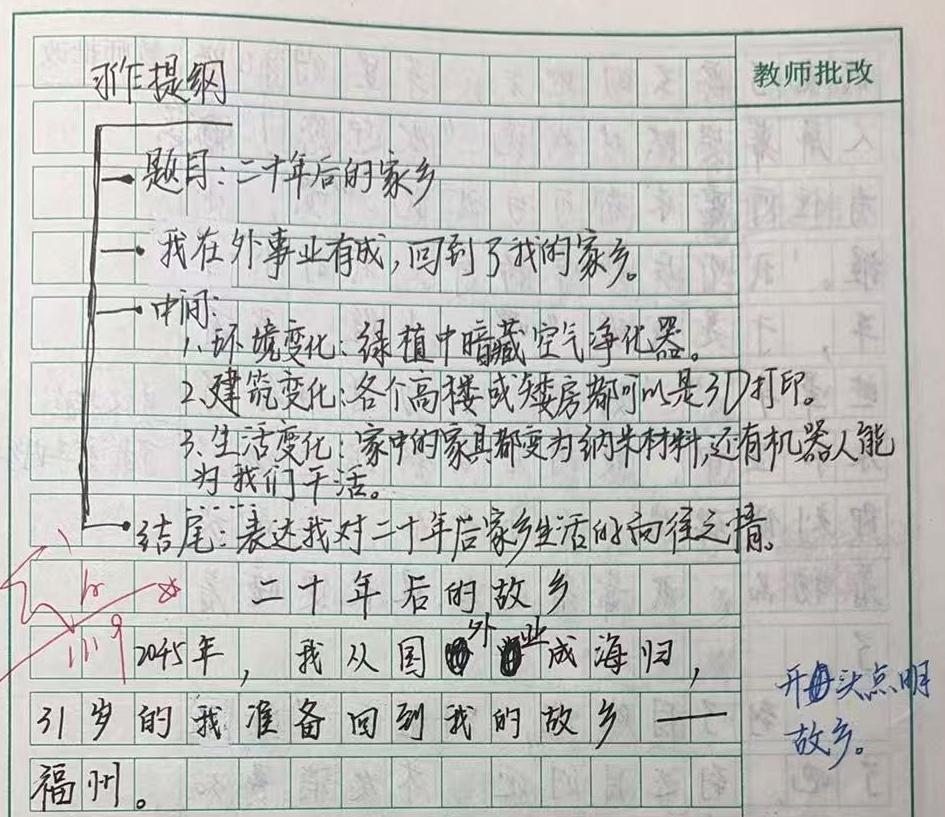 习作提纲
教师批改
题目:二十年后的家乡
我在外事业有成,回到了我的家乡。
中间:
1、环境变化:绿植中暗藏空气净化器。
2、建筑变化:各个高楼或矮房都可以是3D打印。
3、生活变化:家中的家具都变为纳米材料,还有机器人能
为我们干活。
结尾:表达我对二十年后家乡生活的向往之情。
二十年后的故乡
2045年,我从国外业成海归,
31岁的我准备回到我的故乡——
福州。
开头点明
故乡。